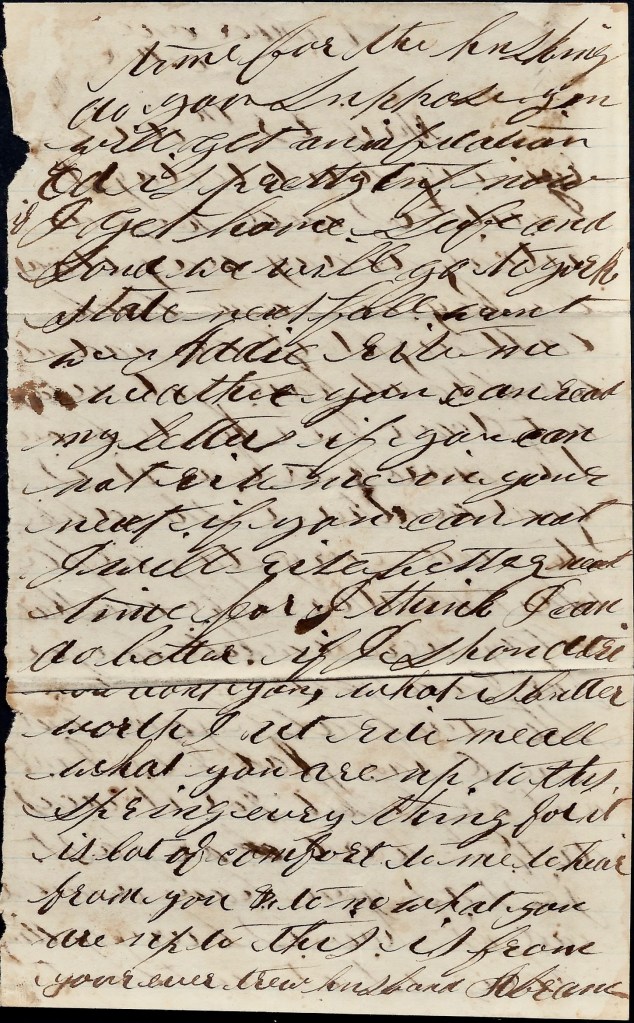 time for the husking
do you suppose you
will get an invitation
Ed is pretty now
if I get home safe and
Sound we will go to york
state next fall wount
we Addie rite me
weather you can read
my letters if you can
not rite me in youre
next if you can not
I will rite better next
time for I think I can
do better. if I should
wont you, what is butter
worth rite me all
what you are up to this
spring every thing for it
is lot of comfort to me to hear
from you & to no what you
are up to this is from
your ever trew husband Abram